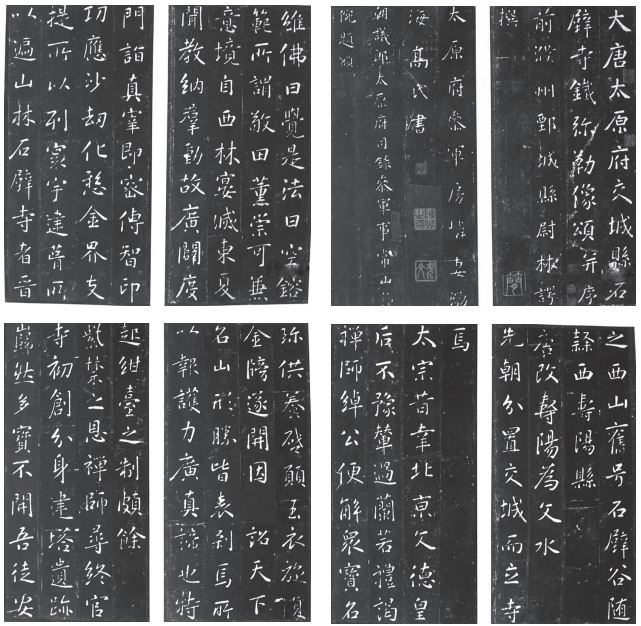 大唐太原府交城縣石
壁寺鐵弥勒像頌并序
前濮州鄄城縣尉林諤
撰
太原府叅軍房嶙妻渤
海高氏書
朝議郎太原府司錄叅軍事常山
題額
維佛曰覺是法曰空
範所謂敬田薰崇可無
意境自西林宴滅東夏
聞教納羣動故廣闢度
門詣真宰即密傳智印
切應沙劫化愍金界支
提所以列寰宇建菁所
以遍山林石壁寺者晉
之西山舊号石壁谷隨
隸西壽陽縣
唐改壽陽為文水
先朝分置交城而立寺
焉
太宗昔幸北京文德皇
后不豫輦過蘭若禮謁
禪師綽公便解衆寶名
珎供養啓願玉衣旋復
金牓遂開因 詔天下
名山形勝皆表刹焉所
以報護力廣真諦也特
起紺臺之制頗餘
紫禁之恩禪師尋終官
寺初創分身建塔遺跡
巋然多寶不開吾徒安